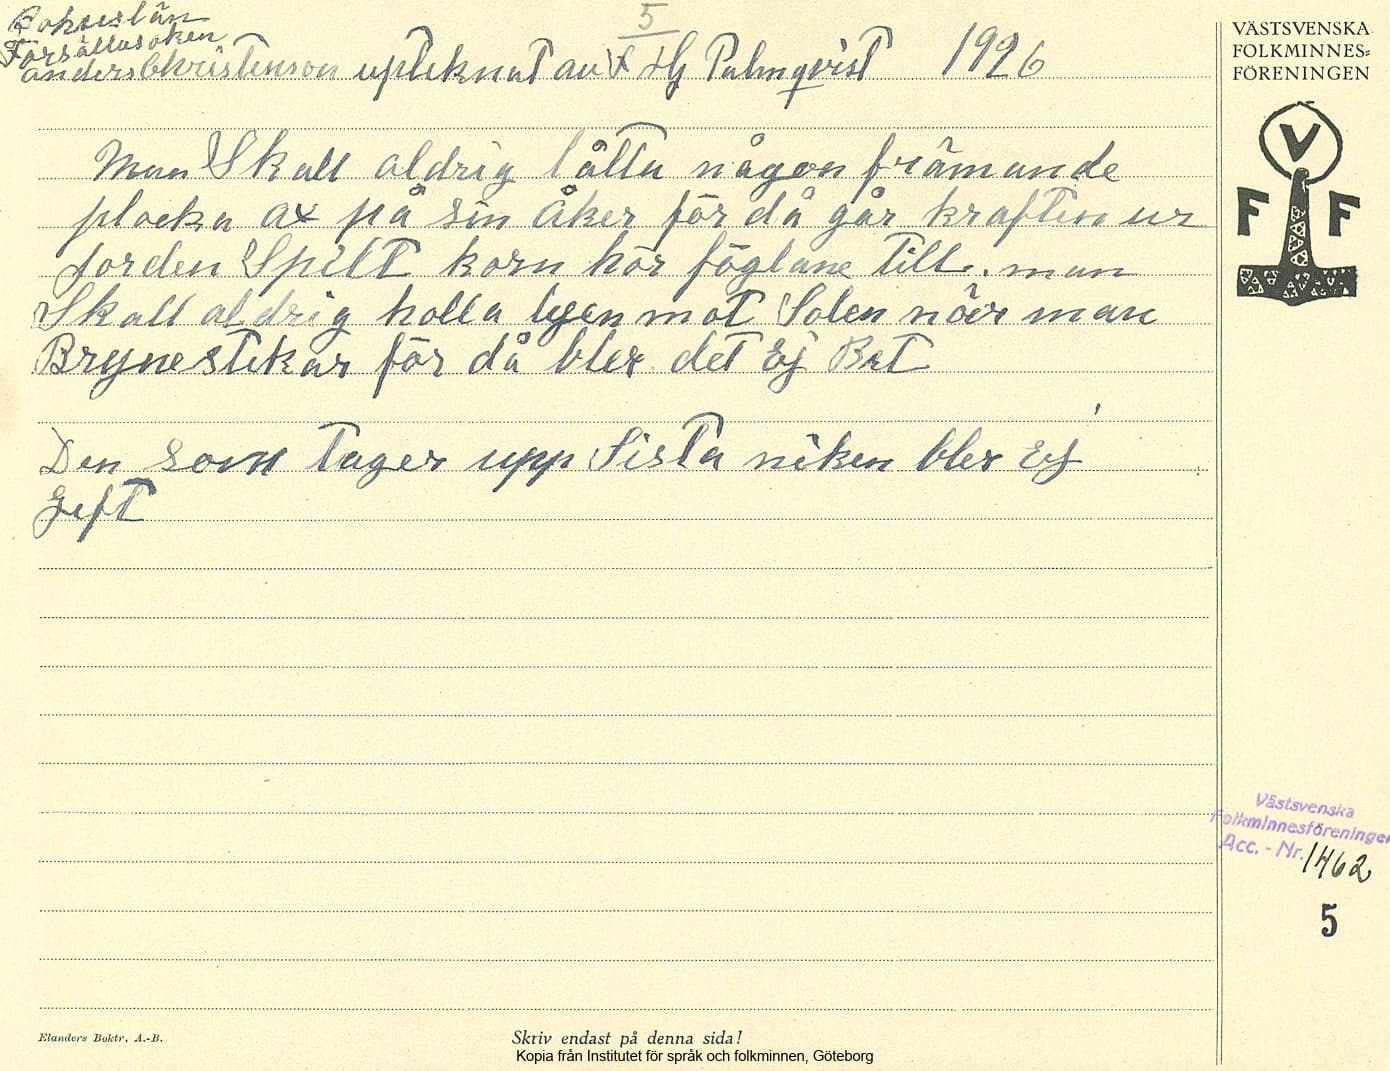 Bohuslän
5
Forsällasoken
anders Christenson upteknat av F Hj Palmqvist 1926
Man Skall aldrig låtta någon främande
plocka ax på sin Åker för då går kraften ur
jorden Spilt korn hör föglane till. man
Skall aldrig holla lyen mot Solen når man
Brynestikar för då bler det Ej Bet
Den som tager upp Sista neken bler Ej
Jeft
VÄSTSVENSKA
FOLKMINNES-
FÖRENINGEN
V
F F
Västsvenska
Folkminnesföreningen
Acc. - Nr. 1462
5
Elanders Boktr. A.-B.
Skriv endast på denna sida!
Kopia från Institutet för språk och folkminnen, Göteborg